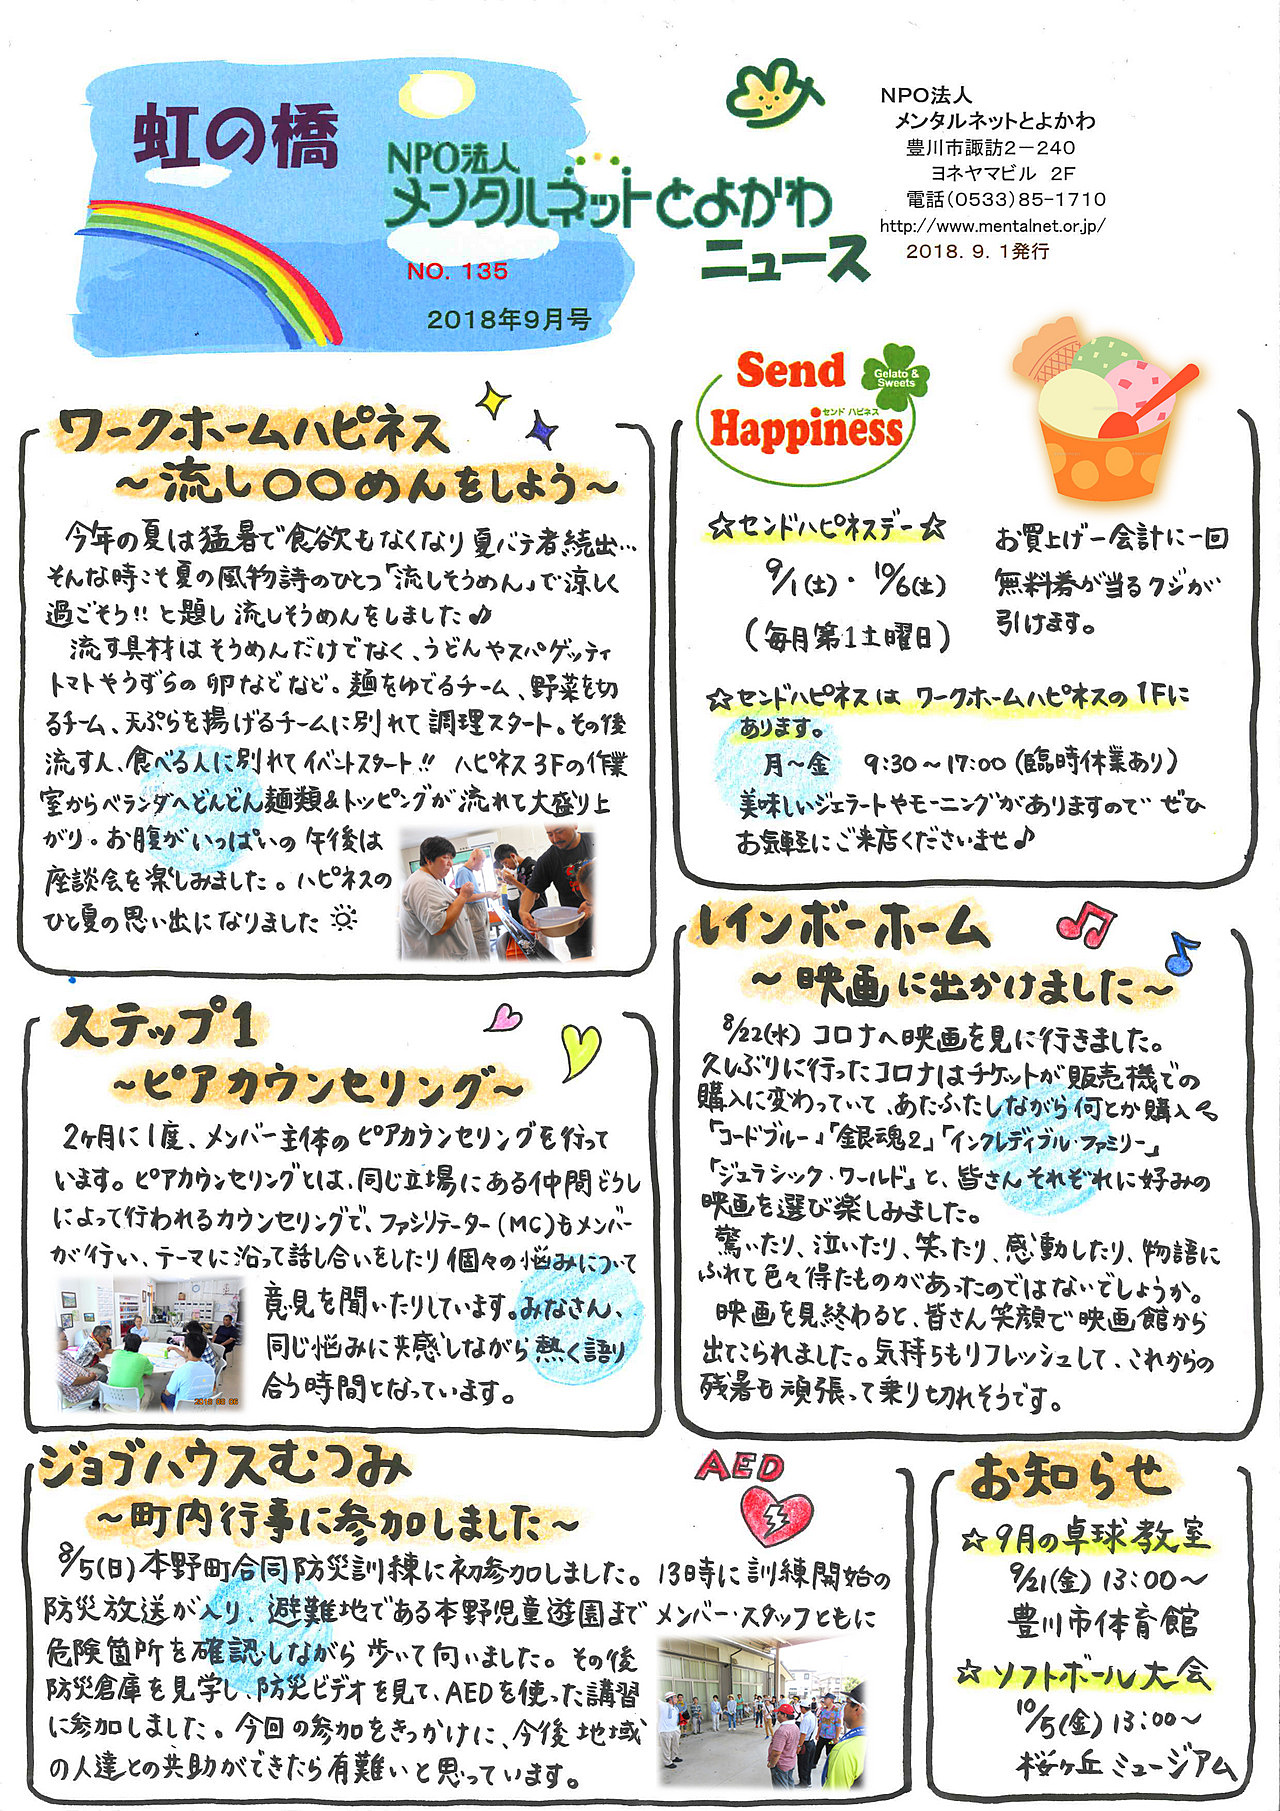 虹の橋
NPO法人
メンタルネットとよかわ
ニュース
NO. 135
2018年9月号
NPO法人
メンタルネットとよかわ
豊川市諏訪2－240
ヨネヤマビル 2F
電話(0533)85-1710
http://www.mentalnet.or.jp/
2018. 9. 1発行
ワークホームハピネス
～流し〇〇めんをしよう～
今年の夏は猛暑で食欲もなくなり夏バテ者続出…
そんな時こそ夏の風物詩のひとつ「流しそうめん」で涼しく
過ごそう!! と題し流しそうめんをしました♪
流す具材はそうめんだけでなく、うどんやスパゲッティ
トマトやうずらの卵などなど。麺をゆでるチーム、野菜を切
るチーム、天ぷらを揚げるチームに別れて調理スタート。その後
流す人、食べる人に別れてイベントスタート!! ハピネス3Fの作業
室からベランダへどんどん麺類&トッピングが流れて大盛り上
がり。お腹がいっぱいの午後は
座談会を楽しみました。ハピネスの
ひと夏の思い出になりました
Send
Happiness
センド ハピネス
Gelato &
Sweets
☆センドハピネスデー☆
9/1(土)・10/6(土)
(毎月第1土曜日)
お買上げ一会計に一回
無料券が当るクジが
引けます。
☆センドハピネスは ワークホームハピネスの1Fに
あります。
月～金 9:30～17:00(臨時休業あり)
美味しいジェラートやモーニングがありますので ぜひ
お気軽にご来店くださいませ♪
ステップ1
～ピアカウンセリング～
2ヶ月に1度、メンバー主体のピアカウンセリングを行って
います。ピアカウンセリングとは、同じ立場にある仲間どうし
によって行われるカウンセリングで、ファシリテーター(MC)もメンバー
が行い、テーマに沿って話し合いをしたり個々の悩みについて
意見を聞いたりしています。みなさん、
同じ悩みに共感しながら熱く語り
合う時間となっています。
レインボーホーム
～映画に出かけました～
8/22(水) コロナへ映画を見に行きました。
久しぶりに行ったコロナはチケットが販売機での
購入に変わっていて、あたふたしながら何とか購入
「コードブルー」「銀魂2」「インクレディブル・ファミリー」
「ジュラシック・ワールド」と、皆さんそれぞれに好みの
映画を選び楽しみました。
驚いたり、泣いたり、笑ったり、感動したり、物語に
ふれて色々得たものがあったのではないでしょうか。
映画を見終わると、皆さん笑顔で映画館から
出てこられました。気持ちもリフレッシュして、これからの
残暑も頑張って乗り切れそうです。
ジョブハウスむつみ
～町内行事に参加しました～
AED
8/5(日)本野町合同防災訓練に初参加しました。13時に訓練開始の
防災放送が入り、避難地である本野児童遊園までメンバー・スタッフともに
危険箇所を確認しながら歩いて向いました。その後
防災倉庫を見学し、防災ビデオを見て、AEDを使った講習
に参加しました。今回の参加をきっかけに、今後地域
の人達との共助ができたら有難いと思っています。
お知らせ
☆9月の卓球教室
9/21(金) 13:00～
豊川市体育館
☆ソフトボール大会
10/5(金) 13:00～
桜ヶ丘ミュージアム